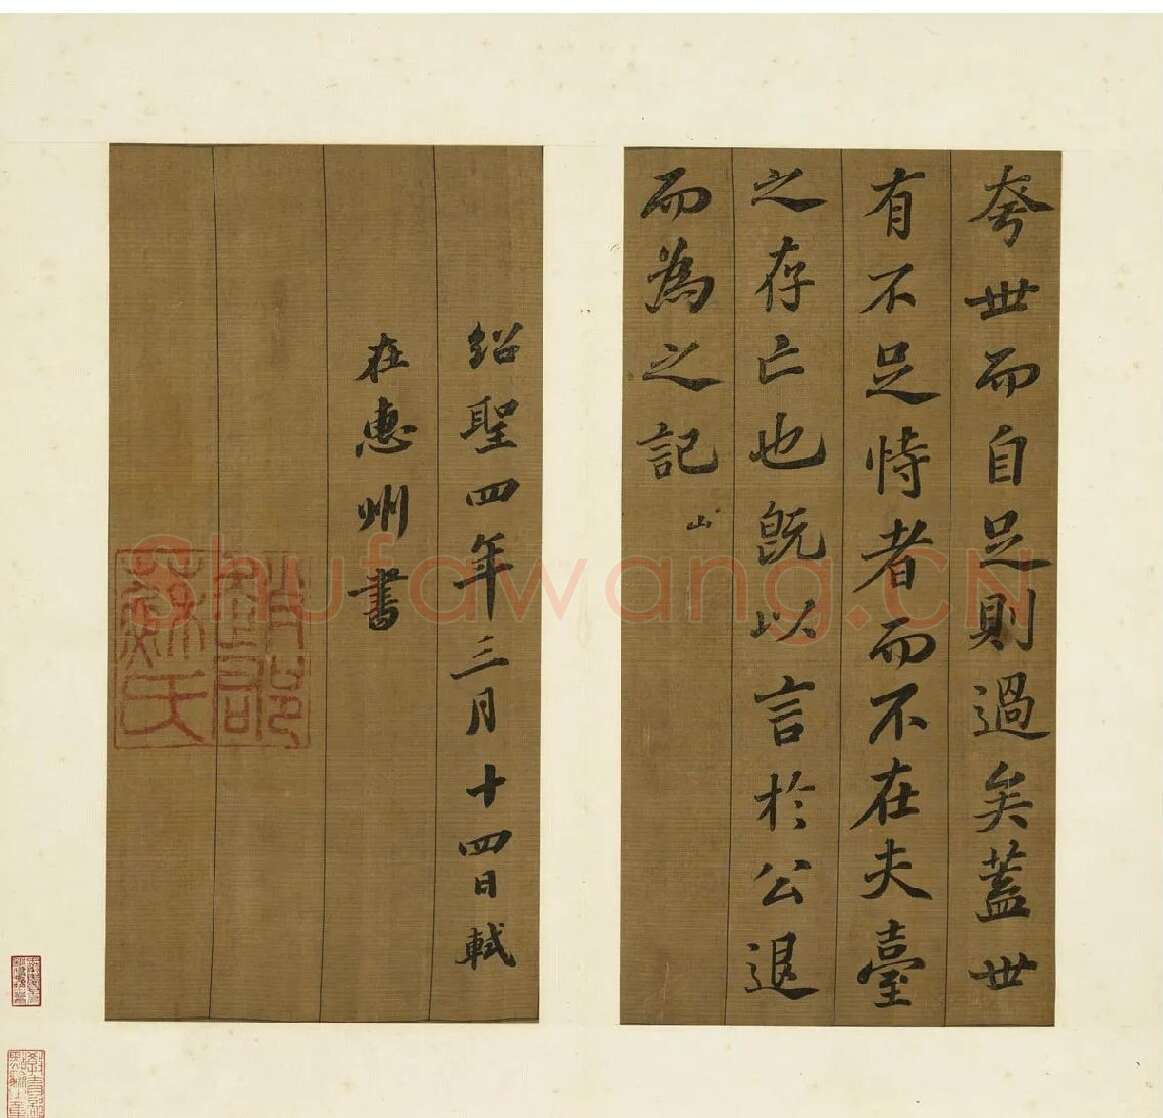 夸世而自足則過矣蓋世
有不足恃者而不在夫臺
之存亡也既以言於公退
而為之記
山
紹聖四年三月十四日軾
在惠州書
趙郡
蘇氏
Shufawang.CN